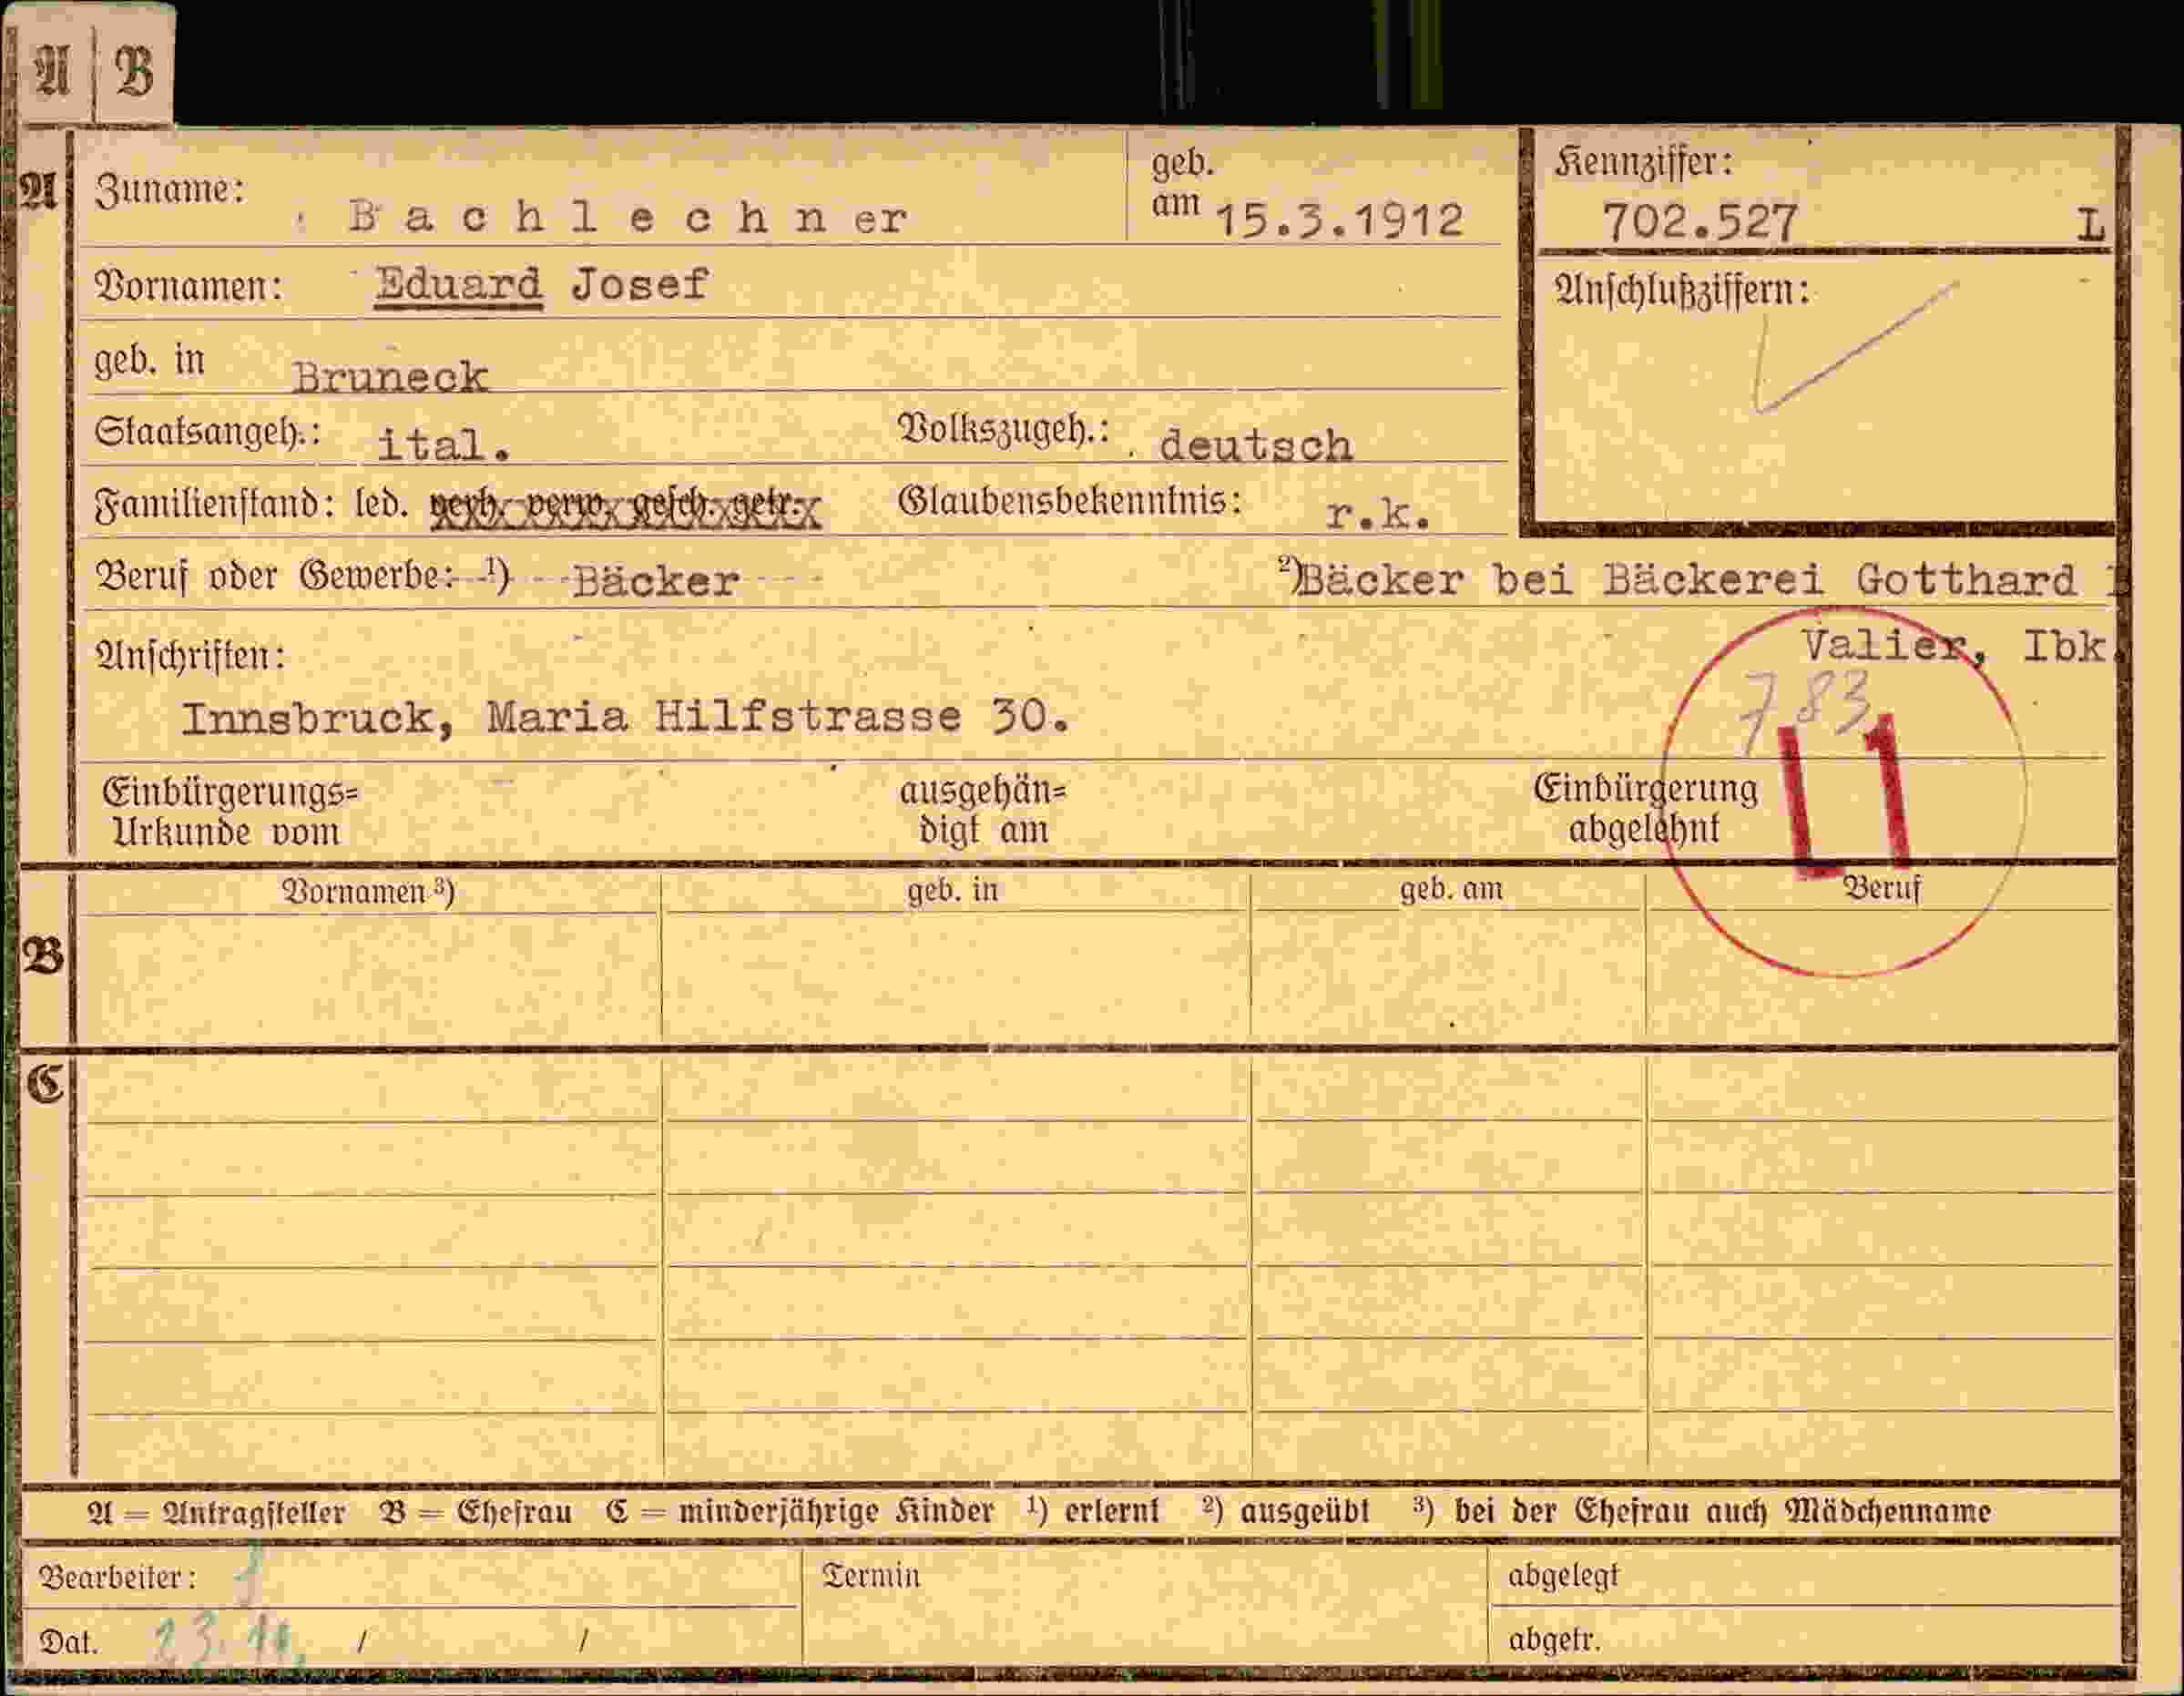 A B
A Zuname: Bachlechner geb. am 15.3.1912 Kennziffer: 702.527 L
Vornamen: Eduard Josef Anschlußziffern:
geb. in Bruneck
Staatsangeh.: ital. Volkszugeh.: deutsch
Familienstand: led. verh. verw. gesch. getr. Glaubensbekenntnis: r.k.
Beruf oder Gewerbe: 1) Bäcker 2) Bäcker bei Bäckerei Gotthard
Valier, Ibk.
Anschriften:
783
Innsbruck, Maria Hilfstrasse 30.
L1
Einbürgerungs= ausgehän= Einbürgerung
Urkunde vom digt am abgelehnt
Vornamen 3) geb. in geb. am Beruf
B
C
A = Antragsteller B = Ehefrau C = minderjährige Kinder 1) erlernt 2) ausgeübt 3) bei der Ehefrau auch Mädchenname
Bearbeiter: Termin abgelegt
Dat. 23. / / abgetr.